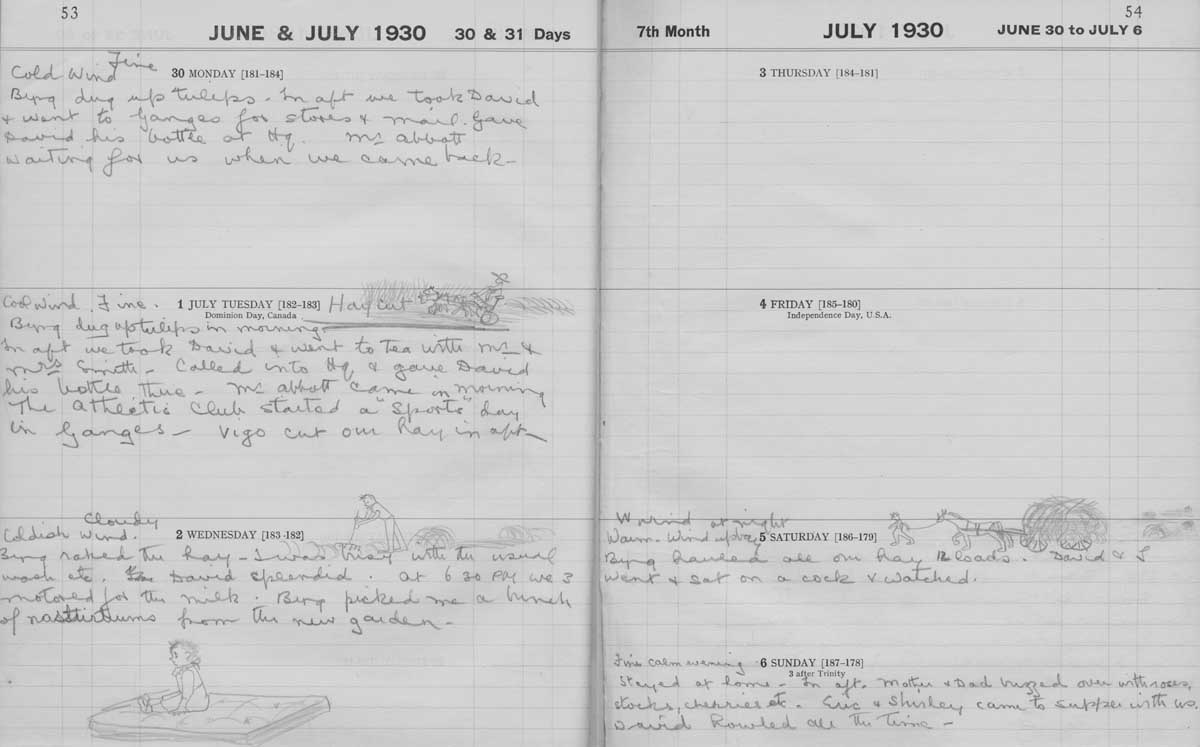 53
JUNE & JULY 1930 30 & 31 Days
Fine
Cold Wind 30 MONDAY [181-184]
Byng dug up tulips. In aft we took David
& went to Ganges for stores & mail. Gave
David his bottle at Hq. Mr abbott
waiting for us when we came back -
Cool Wind. Fine. 1 JULY TUESDAY [182-183] Hay cut
Dominion Day, Canada
Byng dug up tulips in morning
In aft we took David & went to Tea with Mr &
Mrs Smith - Called into Hq & gave David
his bottle there - Mr abbott came in morning
The Athletic Club started a "Sports" day
in Ganges - Vigo cut our hay in aft -
Cloudy
Coldish wind. 2 WEDNESDAY [183-182]
Byng raked the hay - I was busy with the usual
wash etc. David splendid. at 6 30 PM we 3
motored for the milk. Byng picked me a bunch
of nasturtiums from the new garden -
54
7th Month JULY 1930 JUNE 30 to JULY 6
3 THURSDAY [184-181]
4 FRIDAY [185-180]
Independence Day, U.S.A.
Wind at night
Warm - Wind up day 5 SATURDAY [186-179]
Byng hauled all our hay 12 loads. David & I
went & sat on a cock & watched.
Fine calm evening 6 SUNDAY [187-178]
3 after Trinity
Stayed at home - In aft. Mother & Dad buzzed over with roses,
stocks, cherries etc. Eric & Shirley came to supper with us.
David howled all the time -